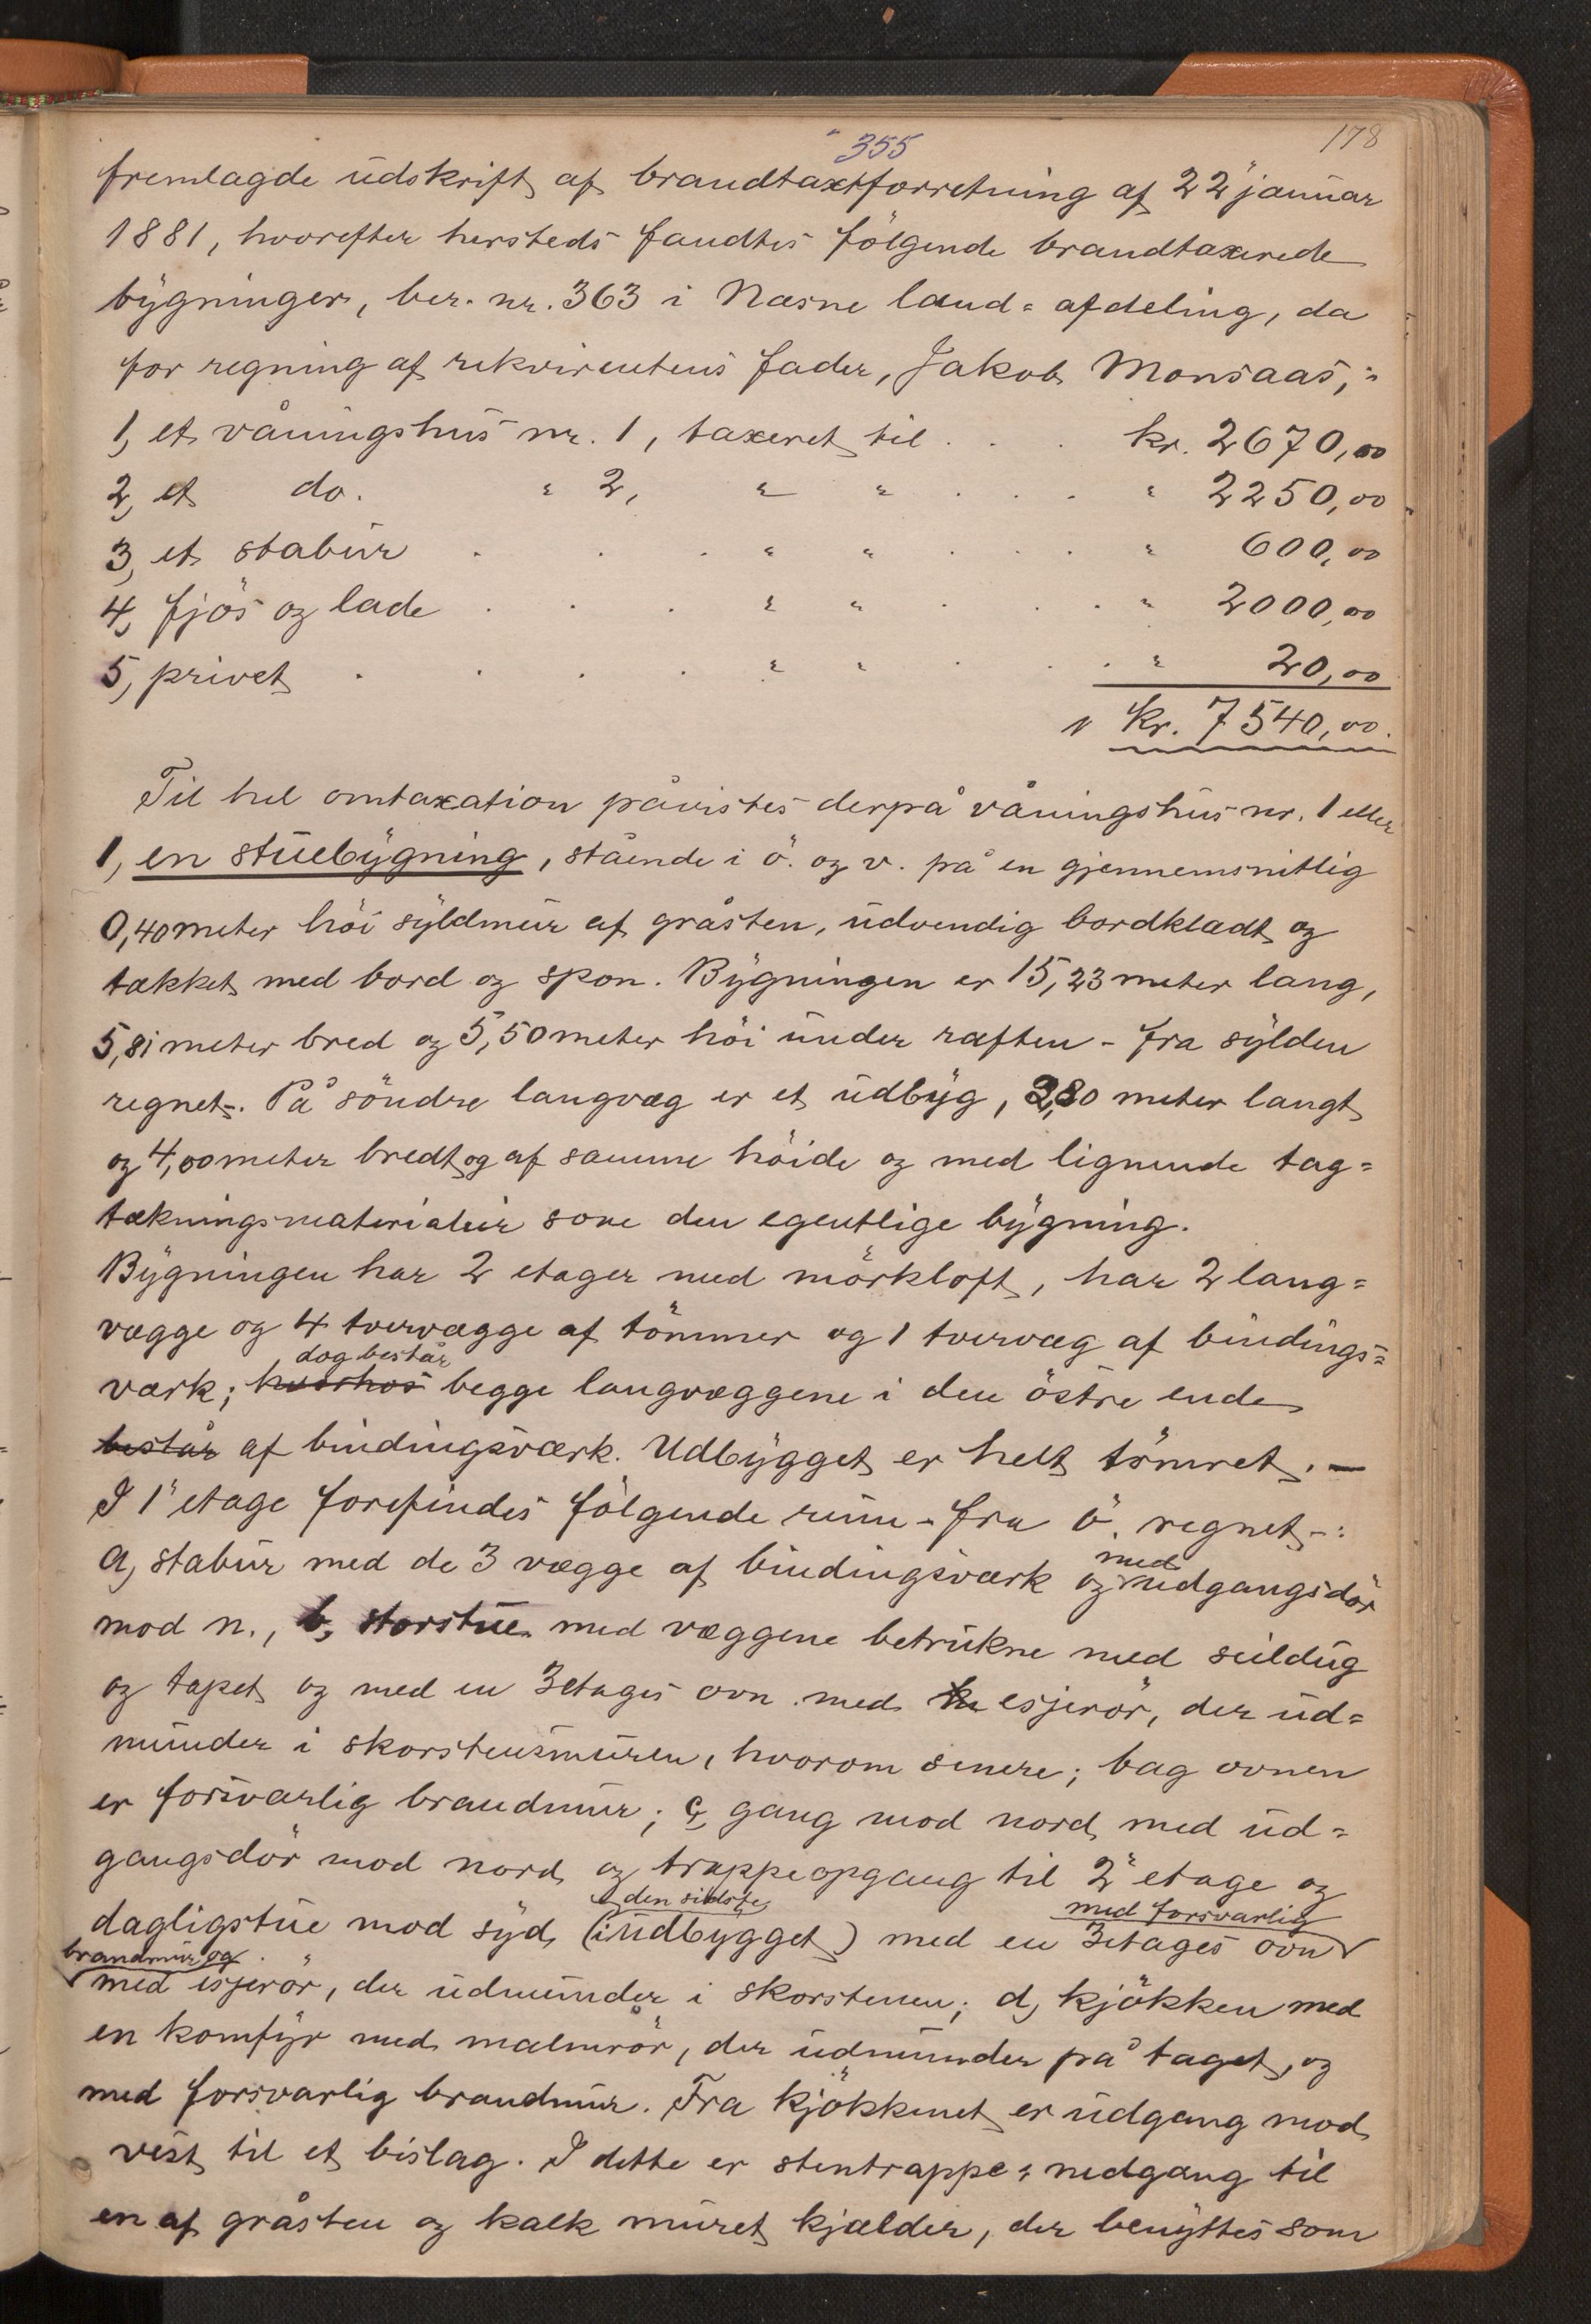 355
178
fremlagde udskrift af brandtaxtforretning af 22 januar
1881, hvorefter hersteds fandtes følgende brandtaxerede
bygninger, ber. nr. 363 i Næsne land= afdeling, da
for regning af rekvirentens fader, Jakob Monsaas,:
1, et våningshus nr. 1, taxeret til . . . kr. 2670,00
2, et do. " 2, " " . . . " 2250,00
3, et stabur . . . " " . . . " 600,00
4, fjös og lade . . . " " . . . " 2000,00
5, privet . . . . " " . . . " 20,00
kr. 7540,00.
Til hel omtaxation påvistes derpå våningshus nr. 1 eller
1, en stuebygning, stående i ö. og v. på en gjennemsnitlig
0,40 meter höi syldmur af gråsten, udvendig bordklædt og
tækket med bord og spon. Bygningen er 15,23 meter lang,
5,81 meter bred og 5,50 meter höi under raften - fra sylden
regnet-. På söndre langvæg er et udbyg, 3,80 meter langt
og 4,00 meter bredt og af samme höide og med lignende tag=
tækningsmaterialier som den egentlige bygning.
Bygningen har 2 etager med mörkloft, har 2 lang=
vægge og 4 tvervægge af tömmer og 1 tvervæg af bindings=
dog består
værk; hvorhos begge langvæggene i den östre ende
består af bindingsværk. Udbygget er helt tömret. —
I 1" etage forefindes fölgende rum - fra ö. regnet -:
med
a, stabur med de 3 vægge af bindingsværk og udgangsdör
mod n., b, storstue med væggene betrukne med seildug
og tapet og med en 3etages ovn med esjerör, der ud=
munder i skorstensmuren, hvorom senere; bag ovnen
er forsvarlig brandmur; c, gang mod nord med ud=
gangsdör mod nord og trappeopgang til 2" etage og
den sidste med forsvarlig
dagligstue mod syd (i udbygget) med en 3etages ovn
brandmur og
med esjerör, der udmunder i skorstenen; d, kjökken med
en komfyr med malmrör, der udmunder på taget, og
med forsvarlig brandmur. Fra kjökkenet er udgang mod
vest til et bislag. I dette er stentrappe= nedgang til
en af gråsten og kalk muret kjælder, der benyttes som